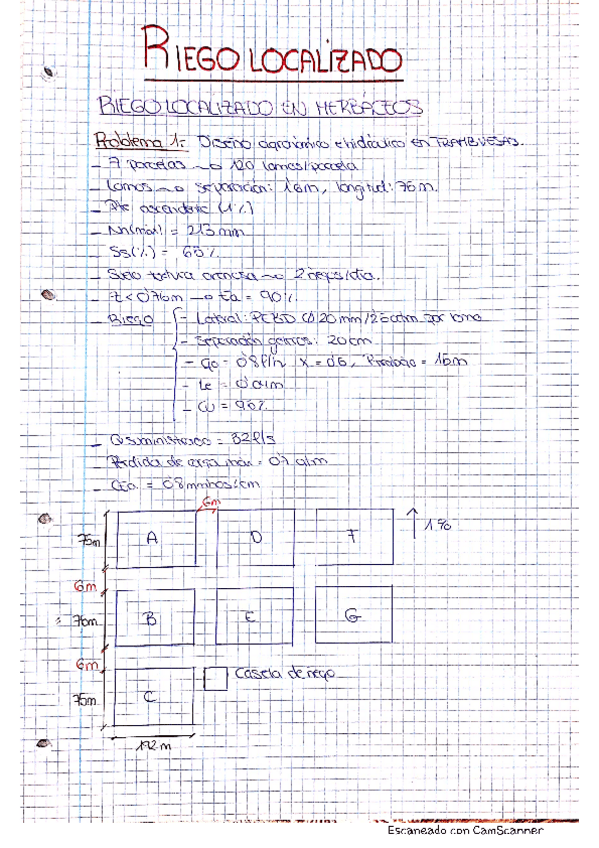 RIEGO LOCALIZADO
RIEGO LOCALIZADO EN HERBÁCEOS
Problema 1: Diseño agronómico e hidráulico en FRAMBUESAS.
- 7 parcelas → 120 lomos/parcela
- Lomos → separación: 1'6m, longitud: 75m.
- Pte ascendente (1%)
- Nn(máx) = 213 mm
- Ss(%) = 63%
- Suelo textura arenosa → 2 riegos/día.
- z < 0'75m → Ea = 90%
- Riego
- Lateral: PEBD Ø 20mm/2'5atm por lomo
- Separación goteros: 20cm
- qe = 0'8 l/h x = 0'5, = 15m
- le =
- CU = 90%
- Q suministrado = 32 l/s
- Pérdida de carga =
- CEa = 0'8 mmhos/cm
6m
75m A D F ↑ 1%
6m
75m B E G
6m
Caseta de riego
75m C
192 m
Escaneado con CamScanner